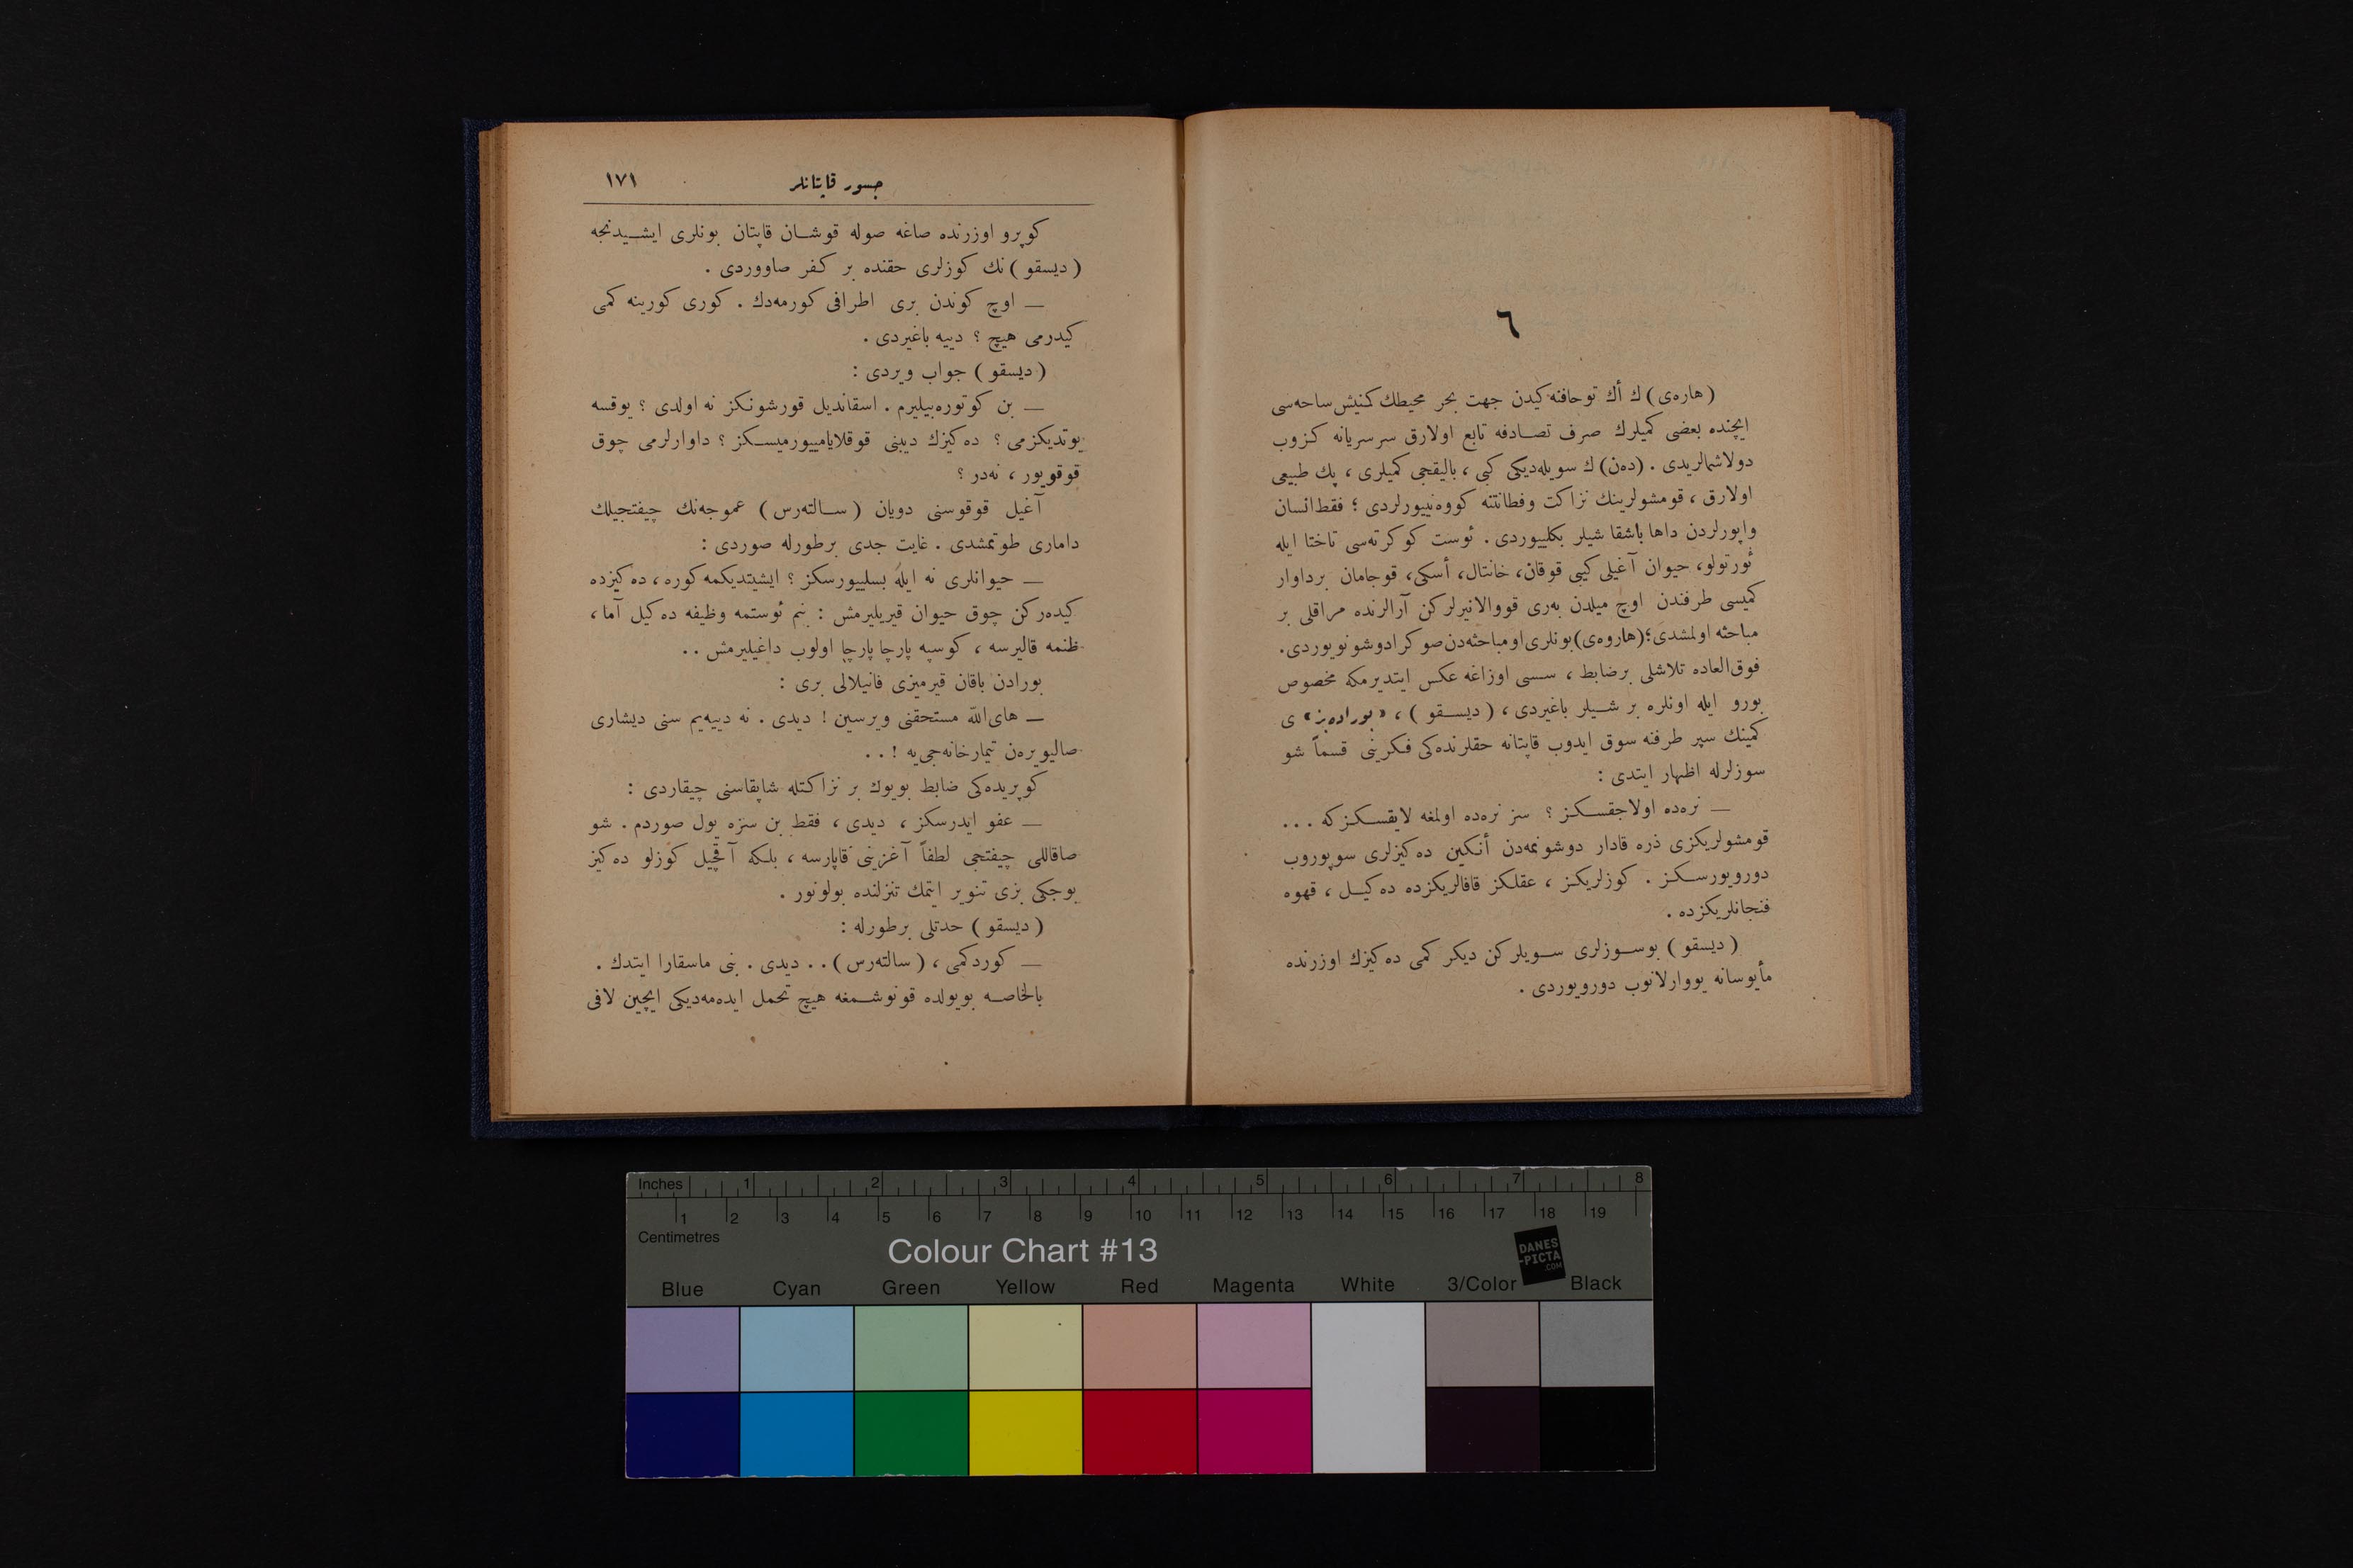 ٦
(هاره‌ی) ك أك توحافنه كیدن جهت بحر محیطك كنیش ساحه‌سی
ایچنده بعضی كمیلرك صرف تصادفه تابع اولارق سرسریانه كزوب
دولاشمالریدی . (ده‌ن) ك سویله‌دیكی كبی ، بالیقجی كمیلری ، پك طبیعی
اولارق ، قومشولرینك نزاكت وفطانتنه كووه‌نییورلردی ؛ فقط انسان
واپورلردن داها باشقا شیلر بكلییوردی . ئوست كوكرته‌سی تاختا ایله
ئورتولو، حیوان آغیلی كیبی قوقان، خانتال، أسكی، قوجامان برداوار
كمیسی طرفندن اوچ میلدن به‌ری قووالانیرلركن آرالرنده مراقلی بر
مباحثه اولمشدی؛ (هاروه‌ی) بونلری او مباحثه‌دن صوكرا دوشونویوردی.
فوق‌العاده تلاشلی برضابط ، سسی اوزاغه عكس ایتدیرمكه مخصوص
بورو ایله اونلره بر شیلر باغیردی ، (دیسقو) ، «بوراده‌یز» ی
كمینك سپر طرفنه سوق ایدوب قاپتانه حقلرنده‌كی فكرینی قسماً شو
سوزلرله اظهار ایتدی :
— نره‌ده اولاجقسكز ؟ سز نره‌ده اولمغه لایقسكز كه ...
قومشولریكزی ذره قادار دوشونمه‌دن أنكین ده‌كیزلری سوپوروب
دورویورسكز . كوزلریكز ، عقلكز قافالریكزده ده‌كیل ، قهوه
فنجانلریكزده .
(دیسقو) بوسوزلری سویلركن دیكر كمی ده‌كیزك اوزرنده
مأیوسانه یووارلانوب دورویوردی .
جسور قاپتانلر
١٧١
كوپرو اوزرنده صاغه صوله قوشان قاپتان بونلری ایشیدنجه
(دیسقو) نك كوزلری حقنده بر كفر صاووردی .
— اوچ كوندن بری اطرافی كورمه‌دك . كوری كورینه كمی
كیدرمی هیچ ؟ دییه باغیردی .
(دیسقو) جواب ویردی :
— بن كوتوره‌بیلیرم . اسقاندیل قورشونكز نه اولدی ؟ یوقسه
یوتدیكزمی ؟ ده‌كیزك دیبنی قوقلایامییورمیسكز ؟ داوارلرمی چوق
قوقویور ، نه‌در ؟
آغیل قوقوسنی دویان (سالته‌رس) عموجه‌نك چیفتجیلك
داماری طوتمشدی . غایت جدی برطورله صوردی :
— حیوانلری نه ایله بسلییورسكز ؟ ایشیتدیكمه كوره ، ده‌كیزده
كیده‌ركن چوق حیوان قیریلیرمش : بنم ئوستمه وظیفه ده‌كیل آما ،
ظنمه قالیرسه ، كوسپه پارچا پارچا اولوب داغیلیرمش ..
بورادن باقان قیرمیزی فانیلالی بری :
— های‌الله مستحقنی ویرسین ! دیدی . نه دییه‌یم سنی دیشاری
صالیویره‌ن تیمارخانه‌جی‌یه ! ..
كوپریده‌كی ضابط بویوك بر نزاكتله شاپقاسنی چیقاردی :
— عفو ایدرسكز ، دیدی ، فقط بن سزه یول صوردم . شو
صاقاللی چیفتجی لطفاً آغزینی قاپارسه ، بلكه آقچیل كوزلو ده‌كیز
بوجكی بزی تنویر ایتمك تنزلنده بولونور .
(دیسقو) حدتلی برطورله :
— كوردكمی ، (سالته‌رس) .. دیدی . بنی ماسقارا ایتدك .
بالخاصه بویولده قونوشمغه هیچ تحمل ایده‌مه‌دیكی ایچین لافی
Inches 1 2 3 4 5 6 7 8
1 2 3 4 5 6 7 8 9 10 11 12 13 14 15 16 17 18 19
Centimetres
Colour Chart #13
DANES
-PICTA
.COM
Blue Cyan Green Yellow Red Magenta White 3/Color Black